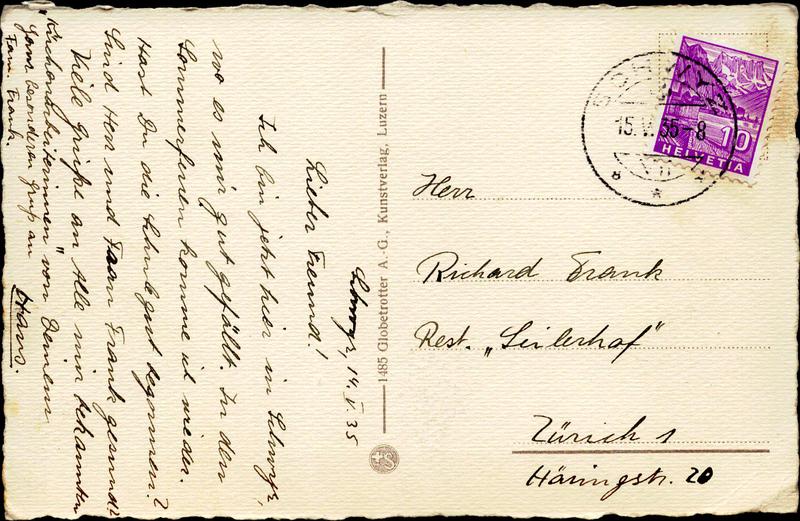 Schwyz, 14. V. 35
Lieber Freund!
Ich bin jetzt hier in Schwyz,
wo es mir gut gefällt. In den
Sommerferien komme ich wieder.
Hast Du die Schule gut begonnen?
Sind Herr und Frau Frank gesund?
Viele Grüsse an Alle mir bekannten
"Küchenarbeiterinnen" von Deinem
Hans.
Ganz besonderen Gruss an
Fam. Frank.
1485 Globetrotter A.-G., Kunstverlag, Luzern
SCHWYZ
15.V.35-8
10
HELVETIA
Herr
Richard Frank
Rest. „Seilerhof"
Zürich 1
Häringstr. 20